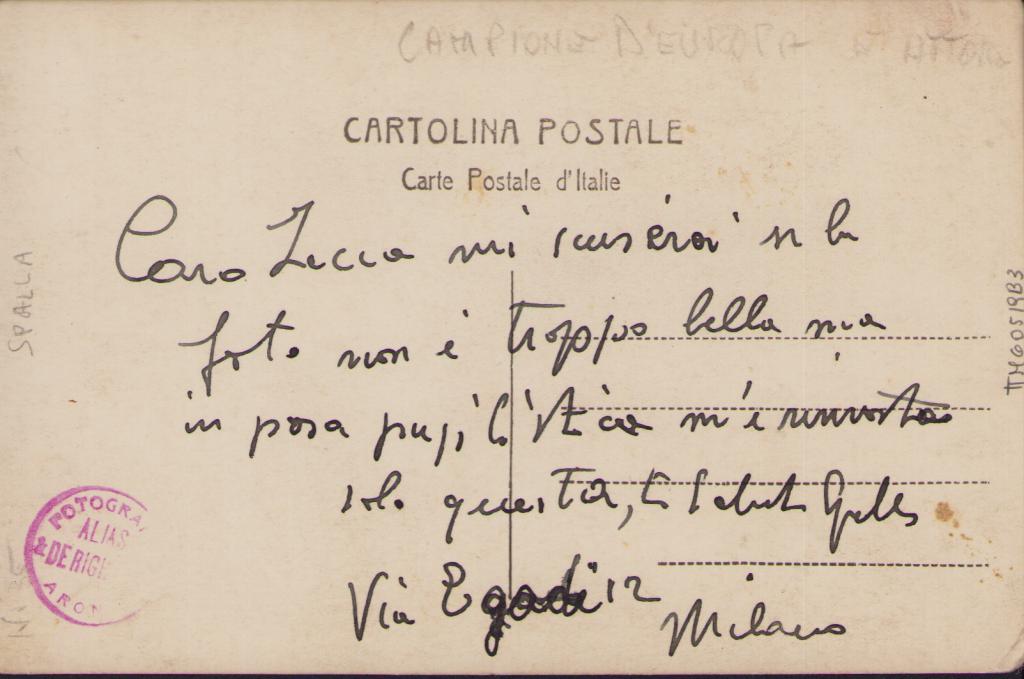 CAMPIONE D'EUROPA
CARTOLINA POSTALE
Carte Postale d'Italie
Caro Zecca mi scuserai se la
foto non è troppo bella ma
in posa pugilistica m'è rimasta
solo questa, ti saluto
Via Egadi 12
Milano
SPALLA
FOTOGRA
ALIAS
& DE RIGH
ARON